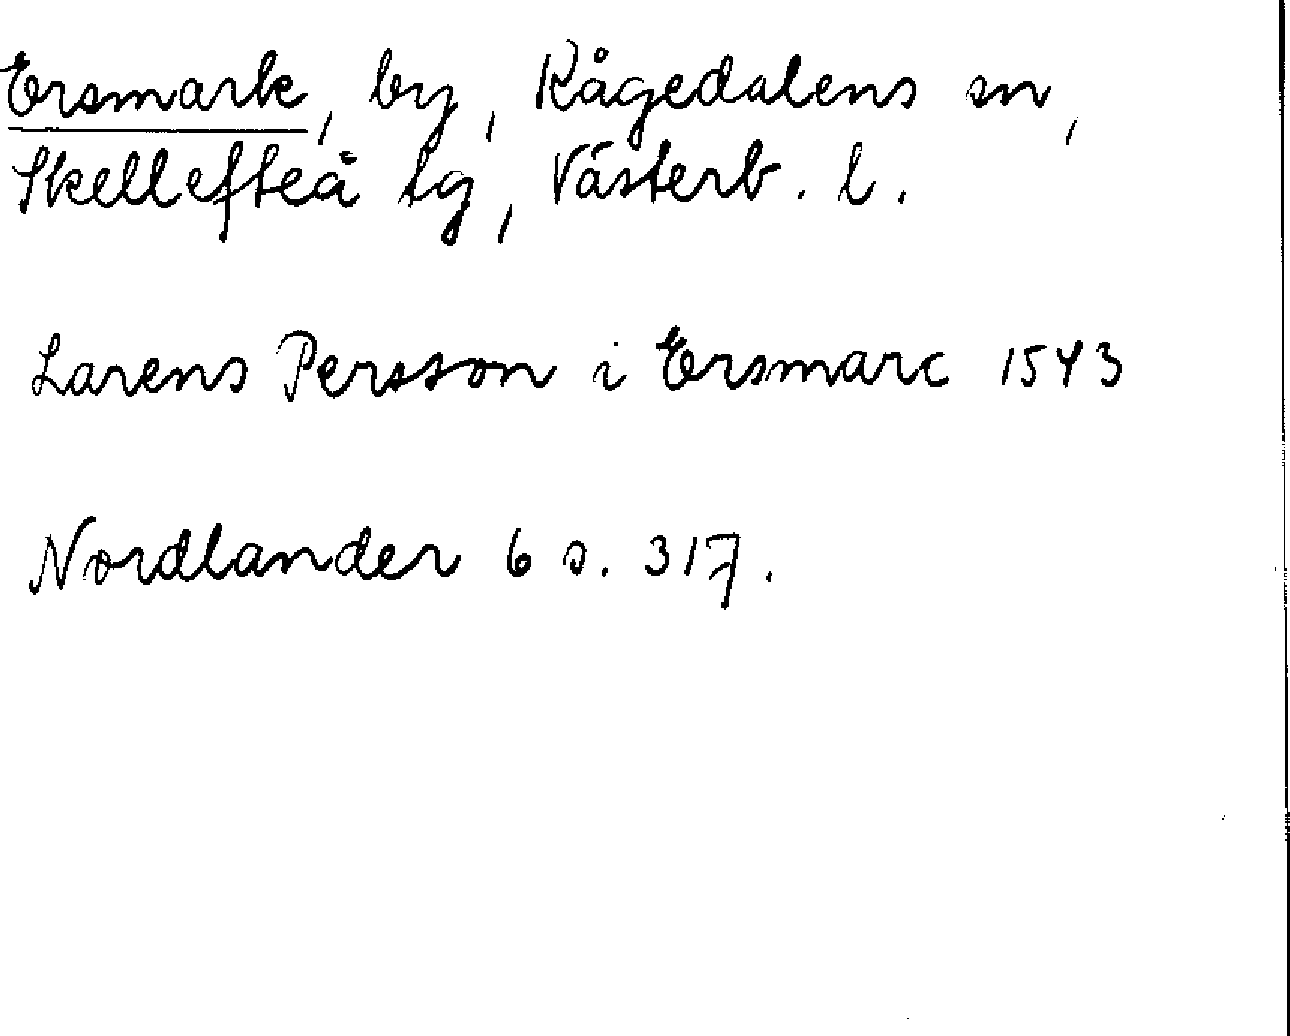 Ersmark, by, Kågedalens sn,
Skellefteå tg, Västerb. l.
Larens Persson i Ersmarc 1543
Nordlander 6 s. 317.